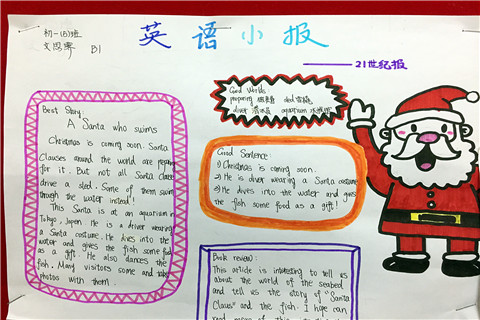 初一(8)班
B1
英语小报
——21世纪报
Best Story:
A Santa who swims
Christmas is coming soon. Santa
Clauses around the world are preparing
for it. But not all Santa Clauses
drive a sled. Some of them swim
through the water instead!
This Santa is at an aquarium in
Tokyo, Japan. He is a driver wearing
a Santa costume. He dives into the
water and gives the fish some food
as a gift. He also dances the
fish. Many visitors some and take
photos with them.
Good Words:
preparing sled 雪橇
diver 潜水员 aquarium 水族馆
Good Sentence:
1) Christmas is coming soon.
2) He is diver wearing a Santa costume
3) He dives into the water and gives
the fish some food as a gift!
Book review:
This article is interesting to tell us
about the world of the seabed
and tell us the story of "Santa
Claus" and the fish. I hope can
read more of this